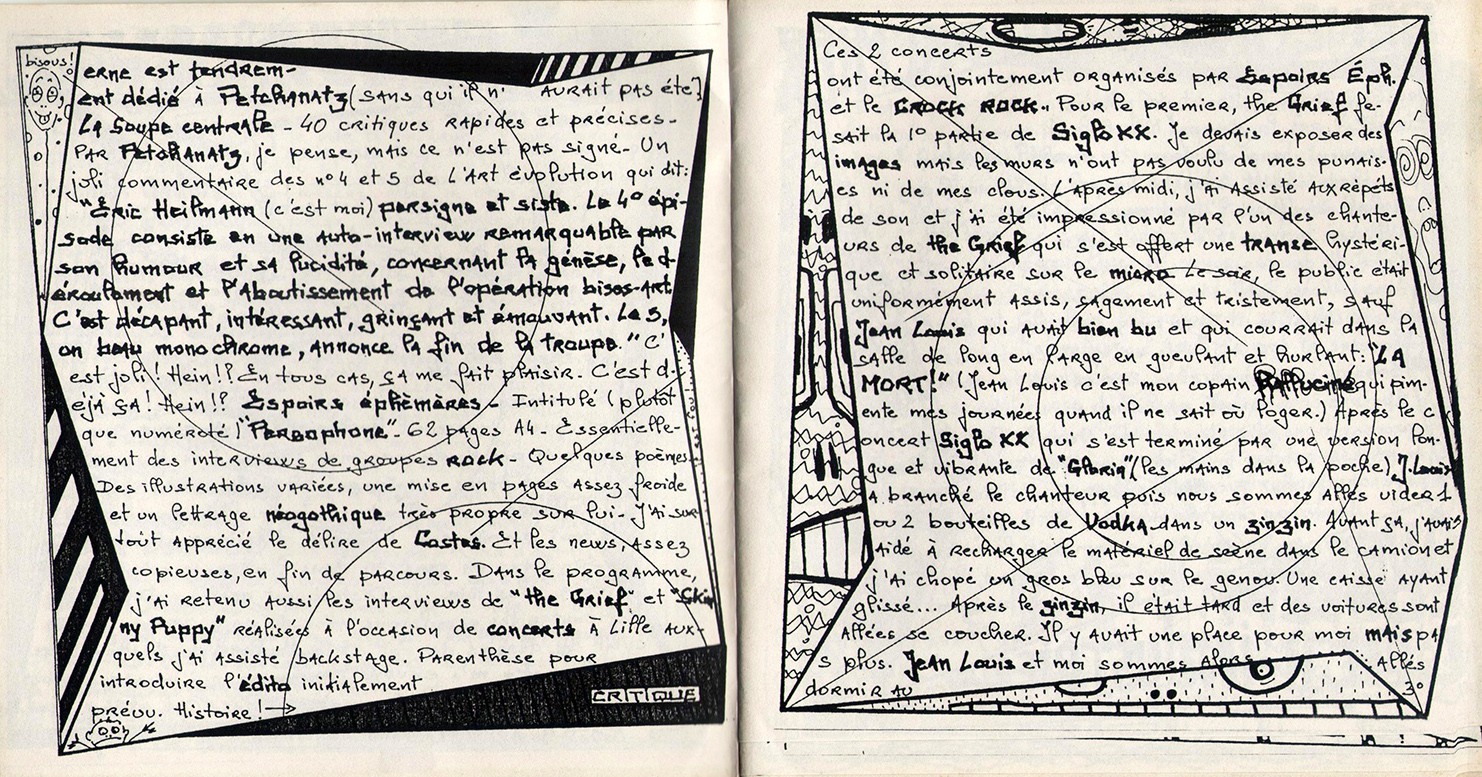 bisous!
erne est tendrem-
ent dédié à Petchanatz (sans qui il n' aurait pas été)
La Soupe centrale - 40 critiques rapides et précises-
par Petchanatz, je pense, mais ce n'est pas signé. Un
joli commentaire des n°4 et 5 de l'Art évolution qui dit:
"Éric Heilmann (c'est moi) persigne et siste. Le 4° épi-
sode consiste en une auto-interview remarquable par
son humour et sa lucidité, concernant la génèse, le d
éroulement et l'aboutissement de l'opération bises-art.
C'est décapant, intéressant, grinçant et émouvant. Le 5,
on beau monochrome, annonce la fin de la troupe." C'
est joli! Hein!? En tous cas, ça me fait plaisir. C'est d-
éjà ça! Hein!? Espoirs éphèmères - Intitulé (plutôt
que numéroté) "Persophone" - 62 pages A4 - Essentielle-
ment des interviews de groupes rock - Quelques poèmes.
Des illustrations variées, une mise en pages assez froide
et un lettrage néogothique très propre sur lui - J'ai sur-
tout apprécié le délire de Costes. Et les news, assez
copieuses, en fin de parcours. Dans le programme,
j'ai retenu aussi les interviews de "the Grief" et "Skin
ny Puppy" réalisées à l'occasion de concerts à Lille aux-
quels j'ai assisté backstage. Parenthèse pour
introduire l'édito initialement
prévu. Histoire! →
CRITIQUE
Ces 2 concerts
ont été conjointement organisés par Espoirs Éph.
et le Crock Rock. Pour le premier, the Grief fe-
sait la 1° partie de Siglo XX. Je devais exposer des
images mais les murs n'ont pas voulu de mes punais-
es ni de mes clous. L'après midi, j'ai assisté aux répéts
de son et j'ai été impressionné par l'un des chante-
urs de the Grief qui s'est offert une transe hystéri-
que et solitaire sur le micro. Le soir, le public était
uniformément assis, sagement et tristement, sauf
Jean Louis qui avait bien bu et qui courrait dans la
salle de long en large en gueulant et hurlant: "LA
MORT!" (Jean Louis c'est mon copain Halluciné qui pim-
ente mes journées quand il ne sait où loger.) Après le c
oncert Siglo XX qui s'est terminé par une version lon-
gue et vibrante de "Gloria" (les mains dans la poche) J. Louis
a branché le chanteur puis nous sommes allés vider 1
ou 2 bouteilles de Vodka dans un zinzin. Avant ça, j'avais
aidé à recharger le matériel de scène dans le camion et
j'ai chopé un gros bleu sur le genou. Une caisse ayant
glissé... Après le zinzin, il était tard et des voitures sont
allées se coucher. Il y avait une place pour moi mais pa
s plus. Jean Louis et moi sommes alors allés
dormir au
3°